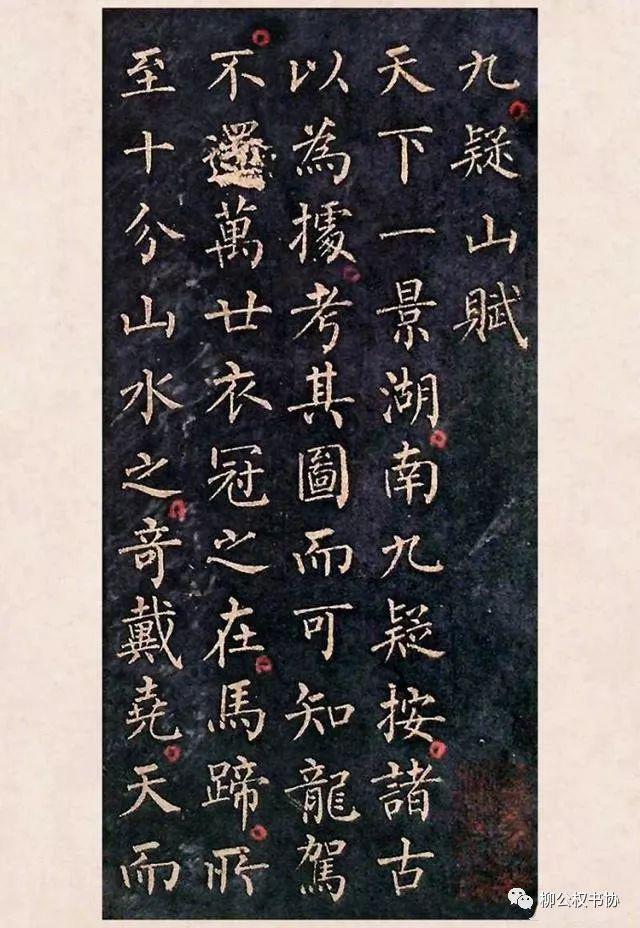 九疑山賦
天下一景湖南九疑按諸古
以為據考其圖而可知龍駕
不還萬廿衣冠之在馬蹄所
至十分山水之奇戴堯天而
柳公权书协